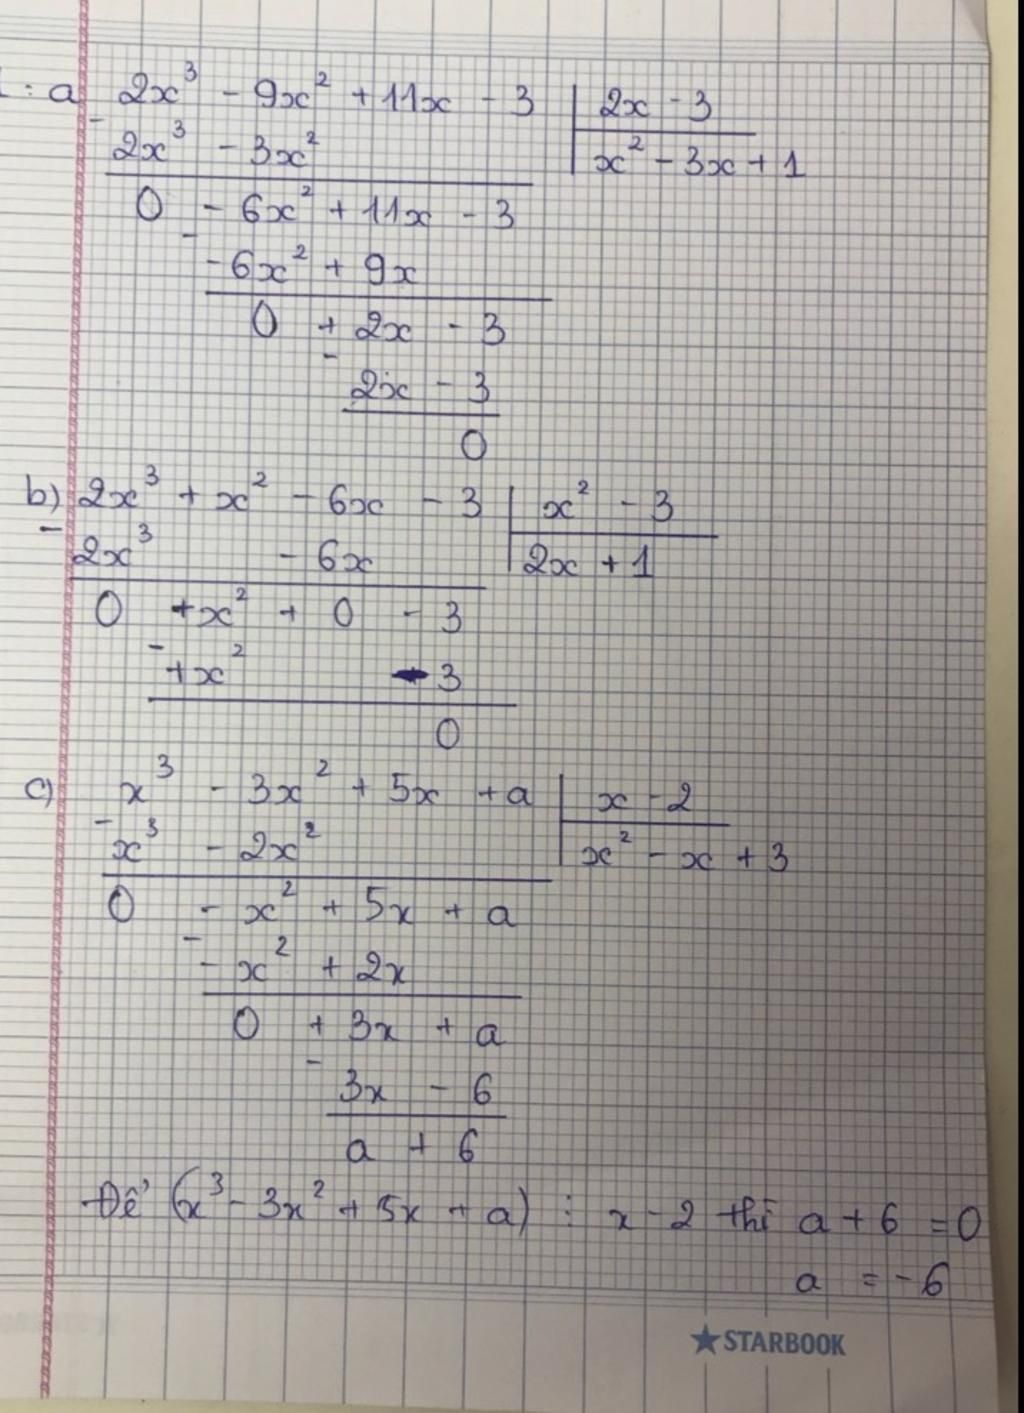 : a) 2x³ - 9x² + 11x - 3 | 2x - 3
- 2x³ - 3x² | x² - 3x + 1
0 - 6x² + 11x - 3
- - 6x² + 9x
0 + 2x - 3
- 2x - 3
0
b) 2x³ + x² - 6x - 3 | x² - 3
- 2x³ - 6x | 2x + 1
0 + x² + 0 - 3
- + x² - 3
0
c) x³ - 3x² + 5x + a | x - 2
- x³ - 2x² | x² - x + 3
0 - x² + 5x + a
- - x² + 2x
0 + 3x + a
- 3x - 6
a + 6
Để (x³ - 3x² + 5x + a) ⋮ x - 2 thì a + 6 = 0
a = - 6
★STARBOOK